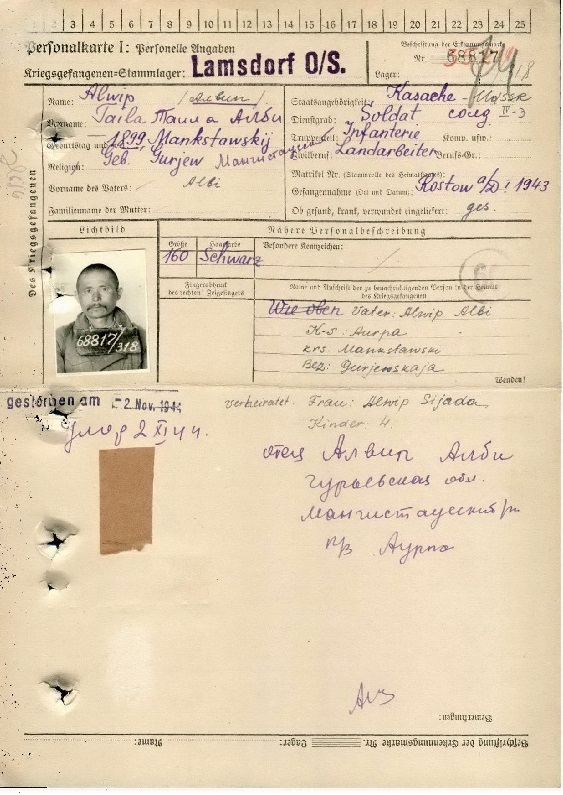 1 2 3 4 5 6 7 8 9 10 11 12 13 14 15 16 17 18 19 20 21 22 23 24 25
Personalkarte I: Personelle Angaben
Kriegsgefangenen-Stammlager: Lamsdorf O/S.
Beschriftung der Erkennungsmarke
Nr. 68817
Lager: 318
Des Kriegsgefangenen
Name: Alwip /Алвип/
Vorname: Taila Таила Албы
Geburtstag und 1899 Mankstawskij
Geb. Gurjew
Religion:
Vorname des Vaters: Albi
Familienname der Mutter:
Staatsangehörigkeit: Kasache
Dienstgrad: Soldat солд. IV-3
Truppenteil: Infanterie Komp. usw.:
Zivilberuf: Landarbeiter Berufs-Gr.:
Matrikel Nr. (Stammrolle des Heimatstaates):
Gefangennahme (Ort und Datum): Rostow a/D. 1943
Ob gesund, krank, verwundet eingeliefert: ges.
Lichtbild
Nähere Personalbeschreibung
Größe Haarfarbe Besondere Kennzeichen:
160 Schwarz
Fingerabdruck
des rechten Zeigefingers
Name und Anschrift der zu benachrichtigenden Person in der Heimat
des Kriegsgefangenen
Wie oben Vater: Alwip Albi
K-s: Aurpa
krs. Mankstawski
Bez: Gurjewskaja
Wenden!
68817/318
gestorben am 2. Nov. 1944
Умер 2 XI 44.
verheiratet. Frau: Alwip Sijada
Kinder 4.
отец Алвип Алби
Гурьевская обл.
Мангистауский р-
Аурпа
Bemerkungen:
Beschriftung der Erkennungsmarke Nr. Lager: Name: